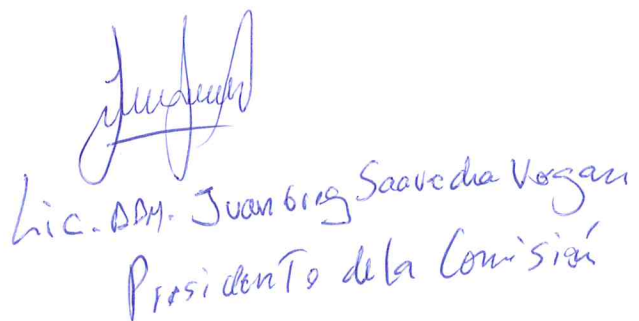 Lic. ADM. Juan Saavedra
Presidente de la Comisión